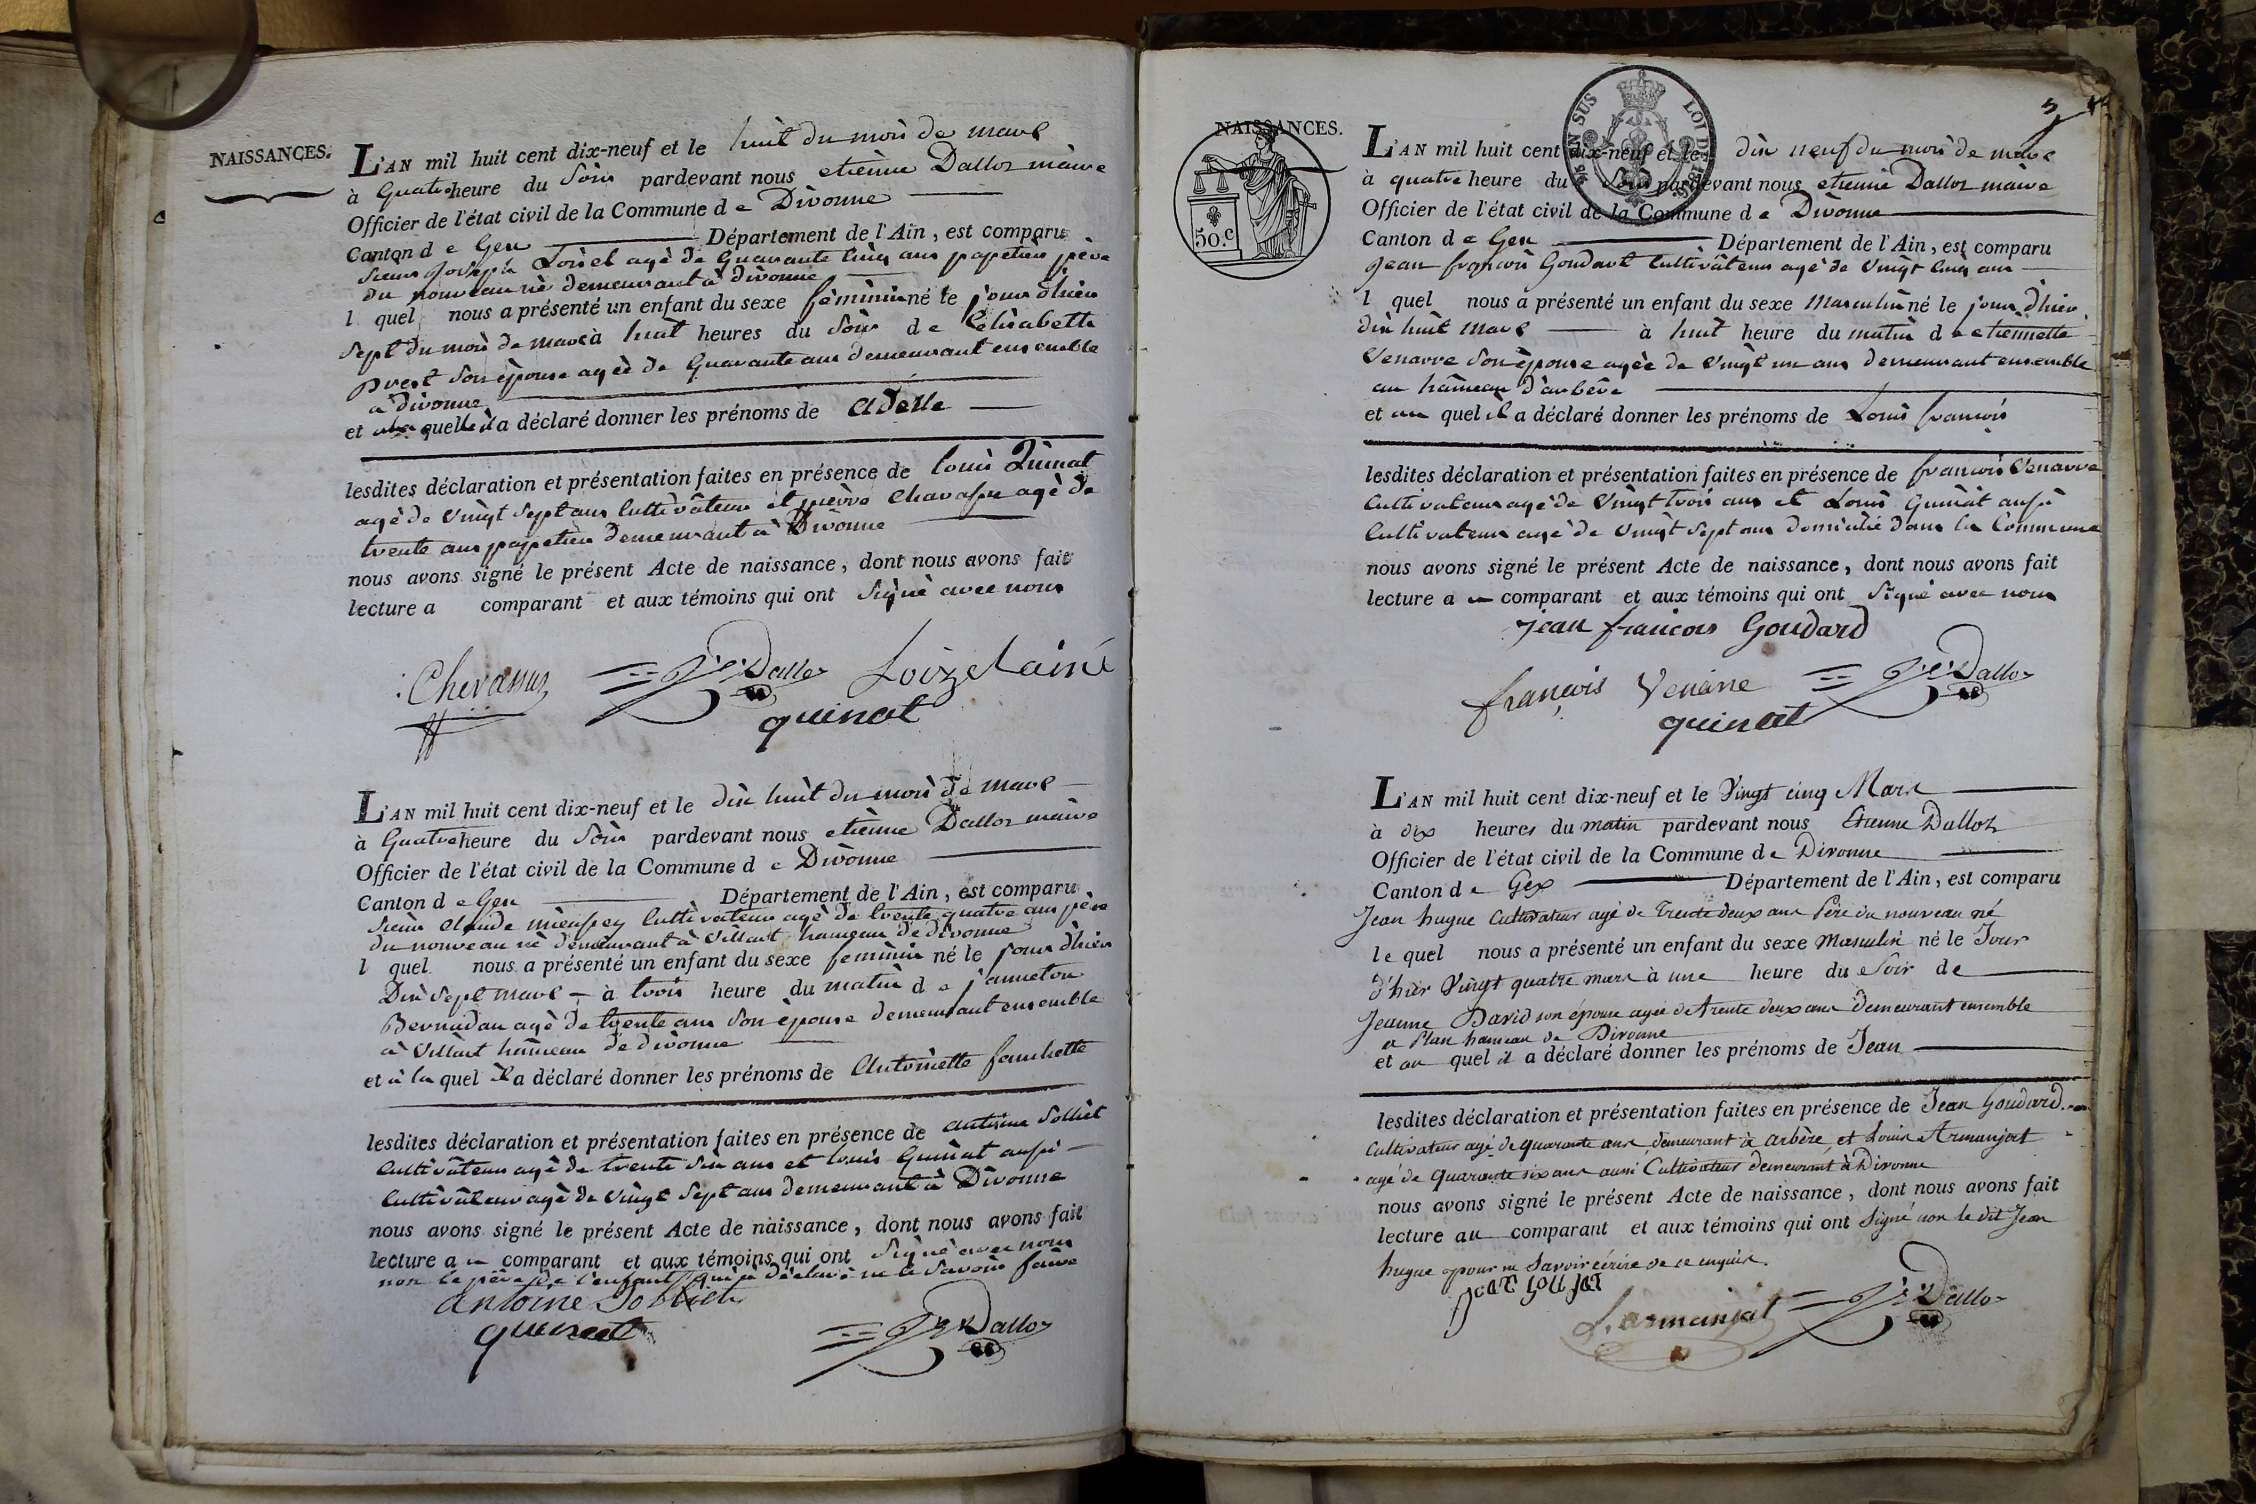 NAISSANCES.
L'AN mil huit cent dix-neuf et le huit du mois de mars
à Quatre heure du Soir pardevant nous etiènne Dalloz màire
Officier de l'état civil de la Commune d e Divonne
Canton d e Gex Département de l'Ain, est comparu
Sieur Joseph Loisel agè de Quarante cinq ans papetier père
du nouveau nè demeurant à divonne
l quel nous a présenté un enfant du sexe fèminin né le jour d'hier
Sept du mois de mars à huit heures du Soir d e Elisabeth
prest Son èpouse agèè de Quarante ans demeurant ensemble
a divonne
et quelle il a déclaré donner les prénoms de Adelle
lesdites déclaration et présentation faites en présence de louis Quinat
agè de vingt Sept ans Cultivâteur et pierre Chavassu agè de
trente ans papetier demeurant à Divonne
nous avons signé le présent Acte de naissance, dont nous avons fait
lecture a comparant et aux témoins qui ont Signè avec nous
Chevassus Dalloz Loizel ainé
quinat
L'AN mil huit cent dix-neuf et le dix huit du mois de mars
à Quatre heure du Soir pardevant nous etiènne Dalloz màire
Officier de l'état civil de la Commune d e Divonne
Canton d e Gex Département de l'Ain, est comparu
Sieur Claude mièussey Cultivateur agè de trente quatre ans père
du nouveau nè demeurant à Villart hameau de divonne
l quel nous a présenté un enfant du sexe fèminin né le jour d'hier
Dix Sept mars à trois heure du matin d e janneton
Bernadan agè de trente ans Son èpouse demeurant ensemble
à Villart hâmeau de divonne
et à la quel Il a déclaré donner les prénoms de Antoinette fanchette
lesdites déclaration et présentation faites en présence de antoine Solliet
Cultivâteur agè de trente Six ans et louis Quinat aussi
Cultivâteur agè de vingt Sept ans demeurant à Divonne
nous avons signé le présent Acte de naissance, dont nous avons fait
lecture a u comparant et aux témoins qui ont Signè avec nous
non le père de l'enfant qui a dèclarè ne le Savoir faire
Antoine Solliet
quinat Dalloz
5
NAISSANCES.
EN SUS
LOI DE 1816.
50.c
L'AN mil huit cent dix-neuf et le dix neuf du mois de mars
à quatre heure du Soir pardevant nous etiennè Dalloz màire
Officier de l'état civil de la Commune d e Divonne
Canton d e Gex Département de l'Ain, est comparu
Jean françois Goudard Cultivâteur agè de Vingt Cinq ans
l quel nous a présenté un enfant du sexe Masculin né le jour d'hier
dix huit mars à huit heure du matin d e etiènnette
Venarre Son èpouse agèe de Vingt un ans demeurant ensemble
au hâmeau d'arbère
et au quel il a déclaré donner les prénoms de Louis françois
lesdites déclaration et présentation faites en présence de françois Venarre
Cultivateur agè de Vingt trois ans et Louis Quinat aussi
Cultivateur agè de Vingt Sept ans domicilié dans la Commune
nous avons signé le présent Acte de naissance, dont nous avons fait
lecture a u comparant et aux témoins qui ont Signè avec nous
jean francois Goudard
françois Venarre Dalloz
quinat
L'AN mil huit cent dix-neuf et le Vingt cinq Mars
à dix heures du matin pardevant nous Etienne Dalloz
Officier de l'état civil de la Commune d e Divonne
Canton d e Gex Département de l'Ain, est comparu
Jean hugue Cultivateur agé de Trente deux ans Père du nouveau né
le quel nous a présenté un enfant du sexe Masculin né le Jour
d'hier Vingt quatre mars à une heure du Soir de
Jeanne David son épouse agée de trente deux ans demeurant ensemble
a Plan hameau de Divonne
et au quel il a déclaré donner les prénoms de Jean
lesdites déclaration et présentation faites en présence de Jean Goudard
Cultivateur agé de quarante ans demeurant à arbère et Louis Armanjat
agé de Quarante six ans aussi Cultivateur demeurant à Divonne
nous avons signé le présent Acte de naissance, dont nous avons fait
lecture au comparant et aux témoins qui ont Signé non le dit Jean
hugue pour ne Savoir écrire de ce enquis
L. armanjat Dalloz